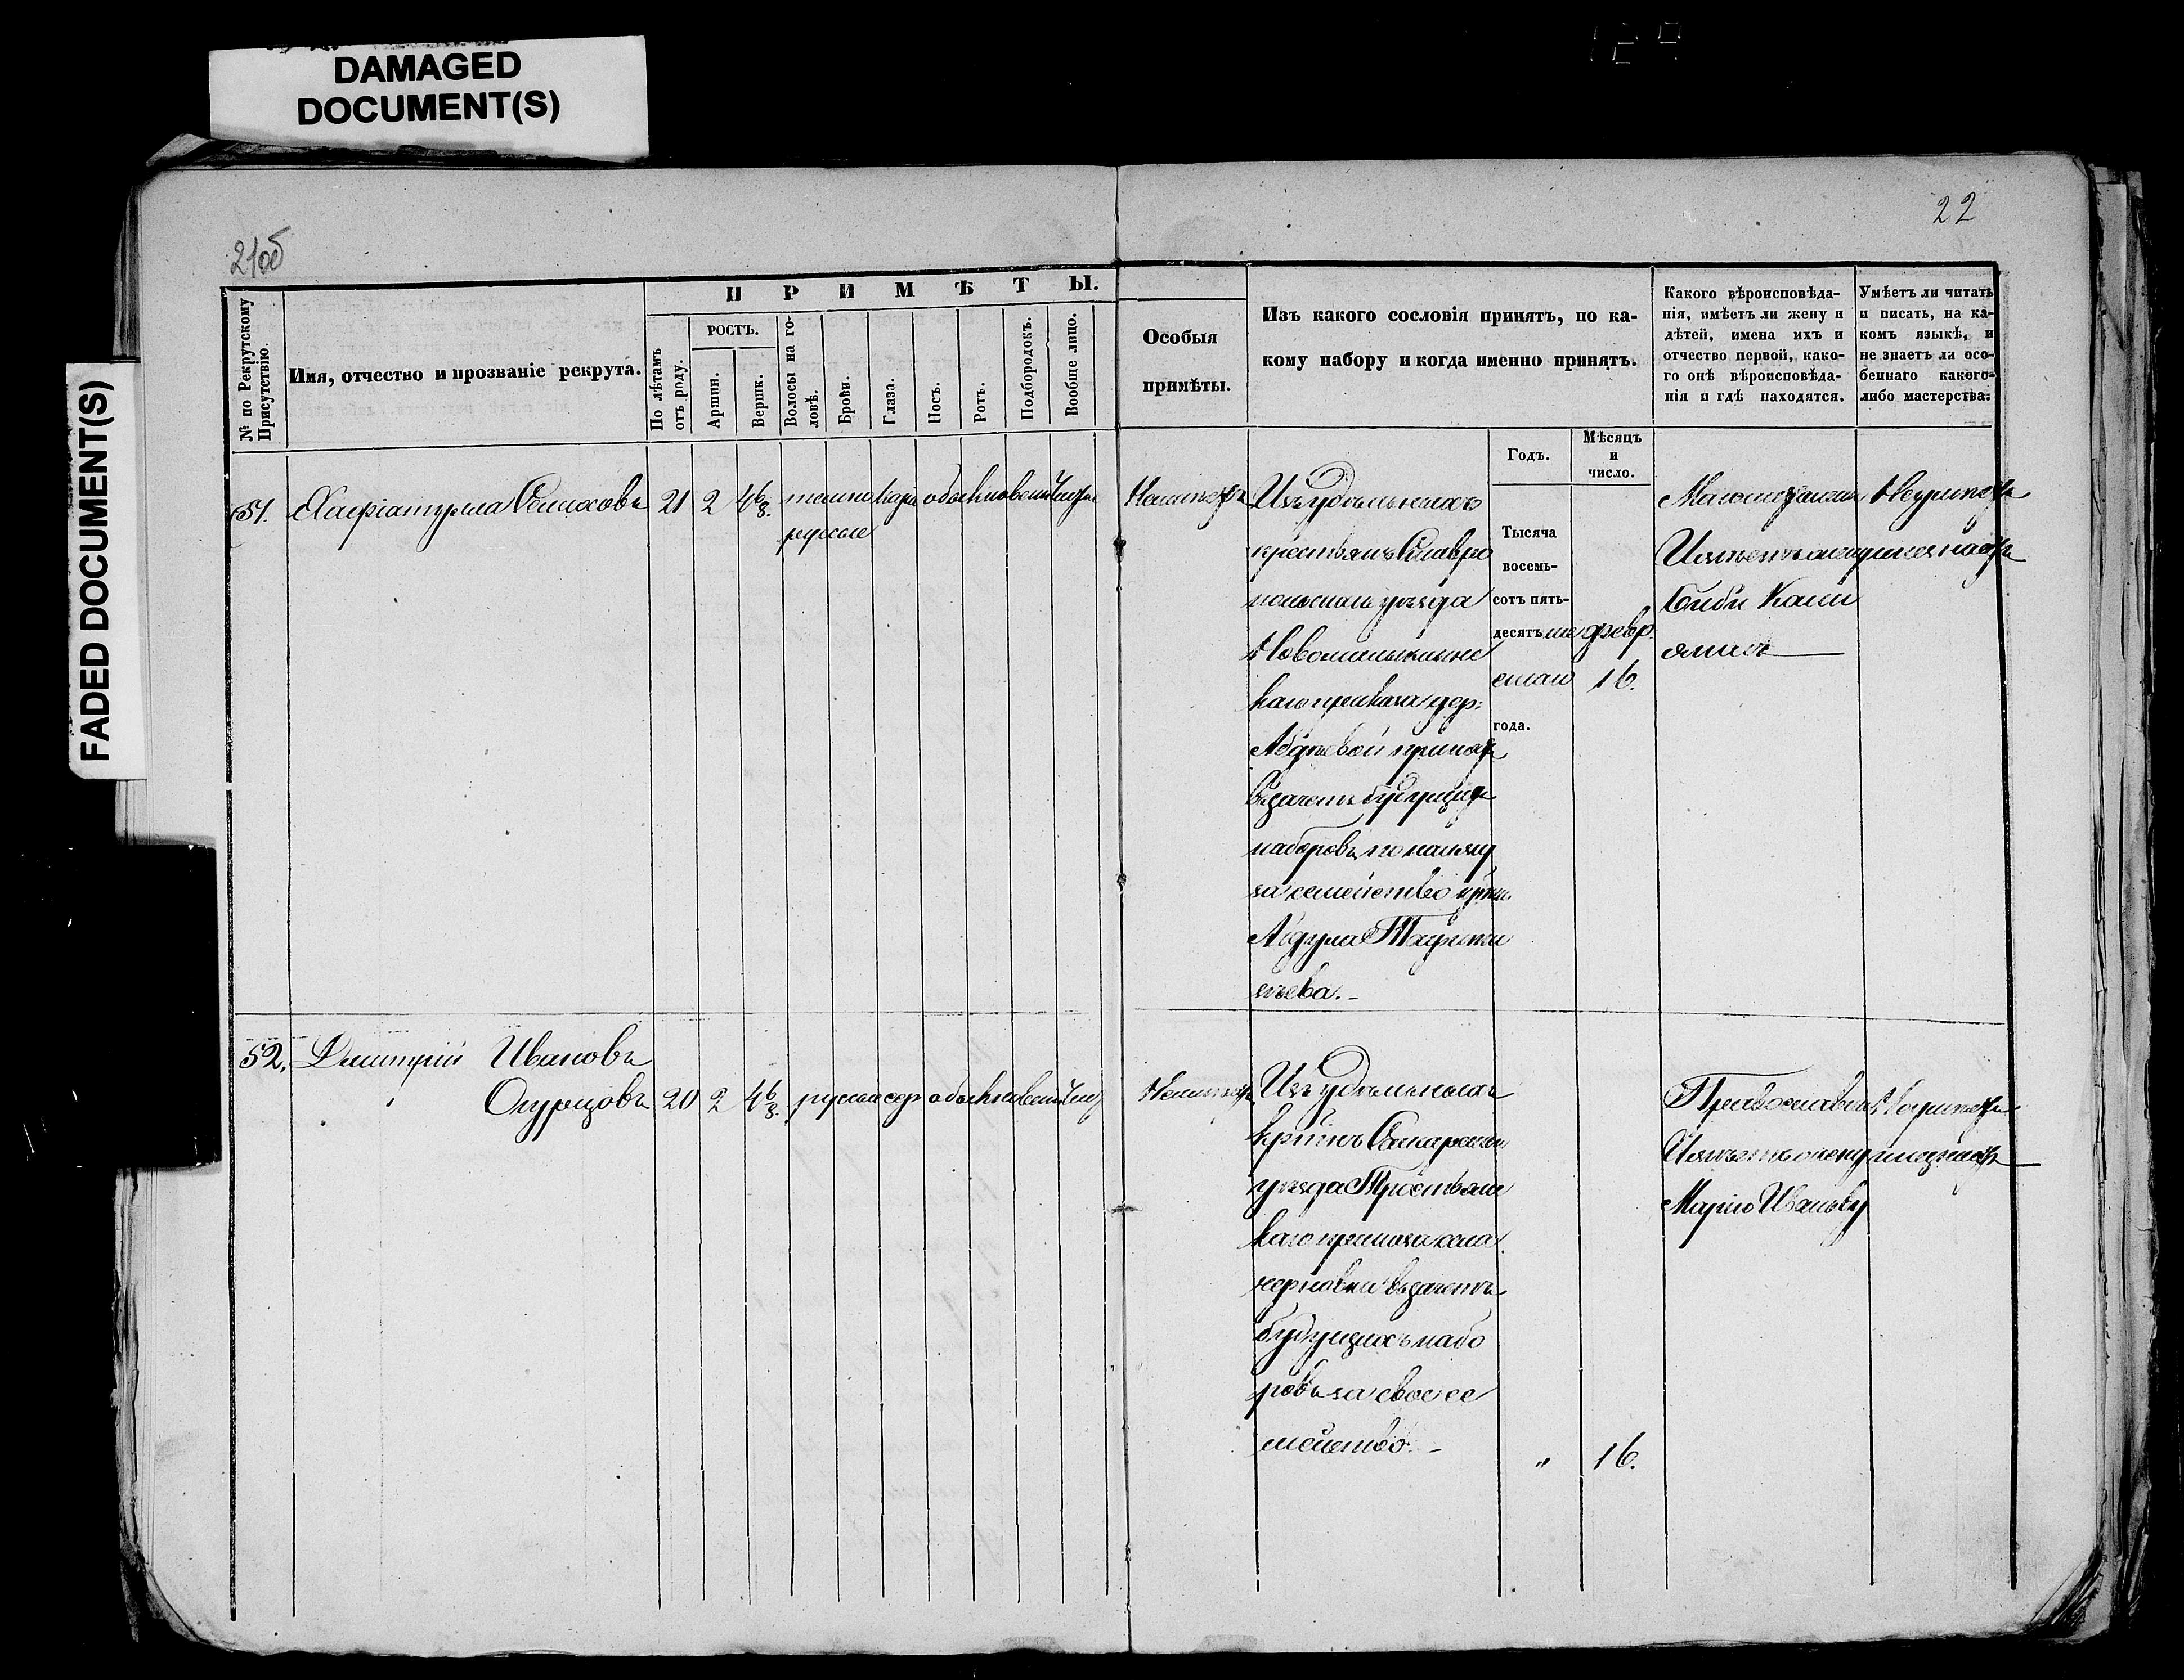 DAMAGED
DOCUMENT(S)
FADED DOCUMENT(S)
21об
22
№ по Рекрутскому Присутствію.
Имя, отчество и прозваніе рекрута.
ПРИМѢТЫ.
По лѣтамъ отъ роду.
РОСТЪ.
Аршин.
Вершк.
Волосы на го-
ловѣ.
Брови.
Глаза.
Носъ.
Ротъ.
Подбородокъ.
Вообще лицо.
Особыя
примѣты.
Изъ какого сословія принятъ, по ка-
кому набору и когда именно принятъ.
Годъ.
Мѣсяцъ
и
число.
Какого вѣроисповѣда-
нія, имѣетъ ли жену и
дѣтей, имена ихъ и
отчество первой, како-
го онѣ вѣроисповѣда-
нія и гдѣ находятся.
Умѣетъ ли читать
и писать, на ка-
комъ языкѣ, и
не знаетъ ли осо-
беннаго какого-
либо мастерства.
51.
21 2 4 6/8.
темно карія обыкновен чист
русые
Неимѣетъ
Изъ удѣльныхъ
крестьянъ Ставро
польскаго уѣзда
Новомалыклинс
каго приказа дер:
Абдѣевой принятъ
въ зачетъ будущихъ
наборовъ по найму
за семейство крти.
Абдула
Тысяча
восемь-
сотъ пять-
десятъ ше
стаго
года.
февр.
16.
Магометанскаго
Имѣетъ жену
Биби Кали
Неумѣетъ
и не знаетъ
52. Дмитрій Ивановъ
Огурцовъ 20 2 4 6/8. русые сер обыкновен чис
Неимѣетъ
Изъ удѣльныхъ
кртінъ Самарскаго
уѣзда Тростянс
каго приказа села
въ зачетъ
будущихъ набо
ровъ за свое се
мейство. –
" 16.
Православнаго
Имѣетъ жену
Марію Иванову
Неумѣетъ
и не знаетъ